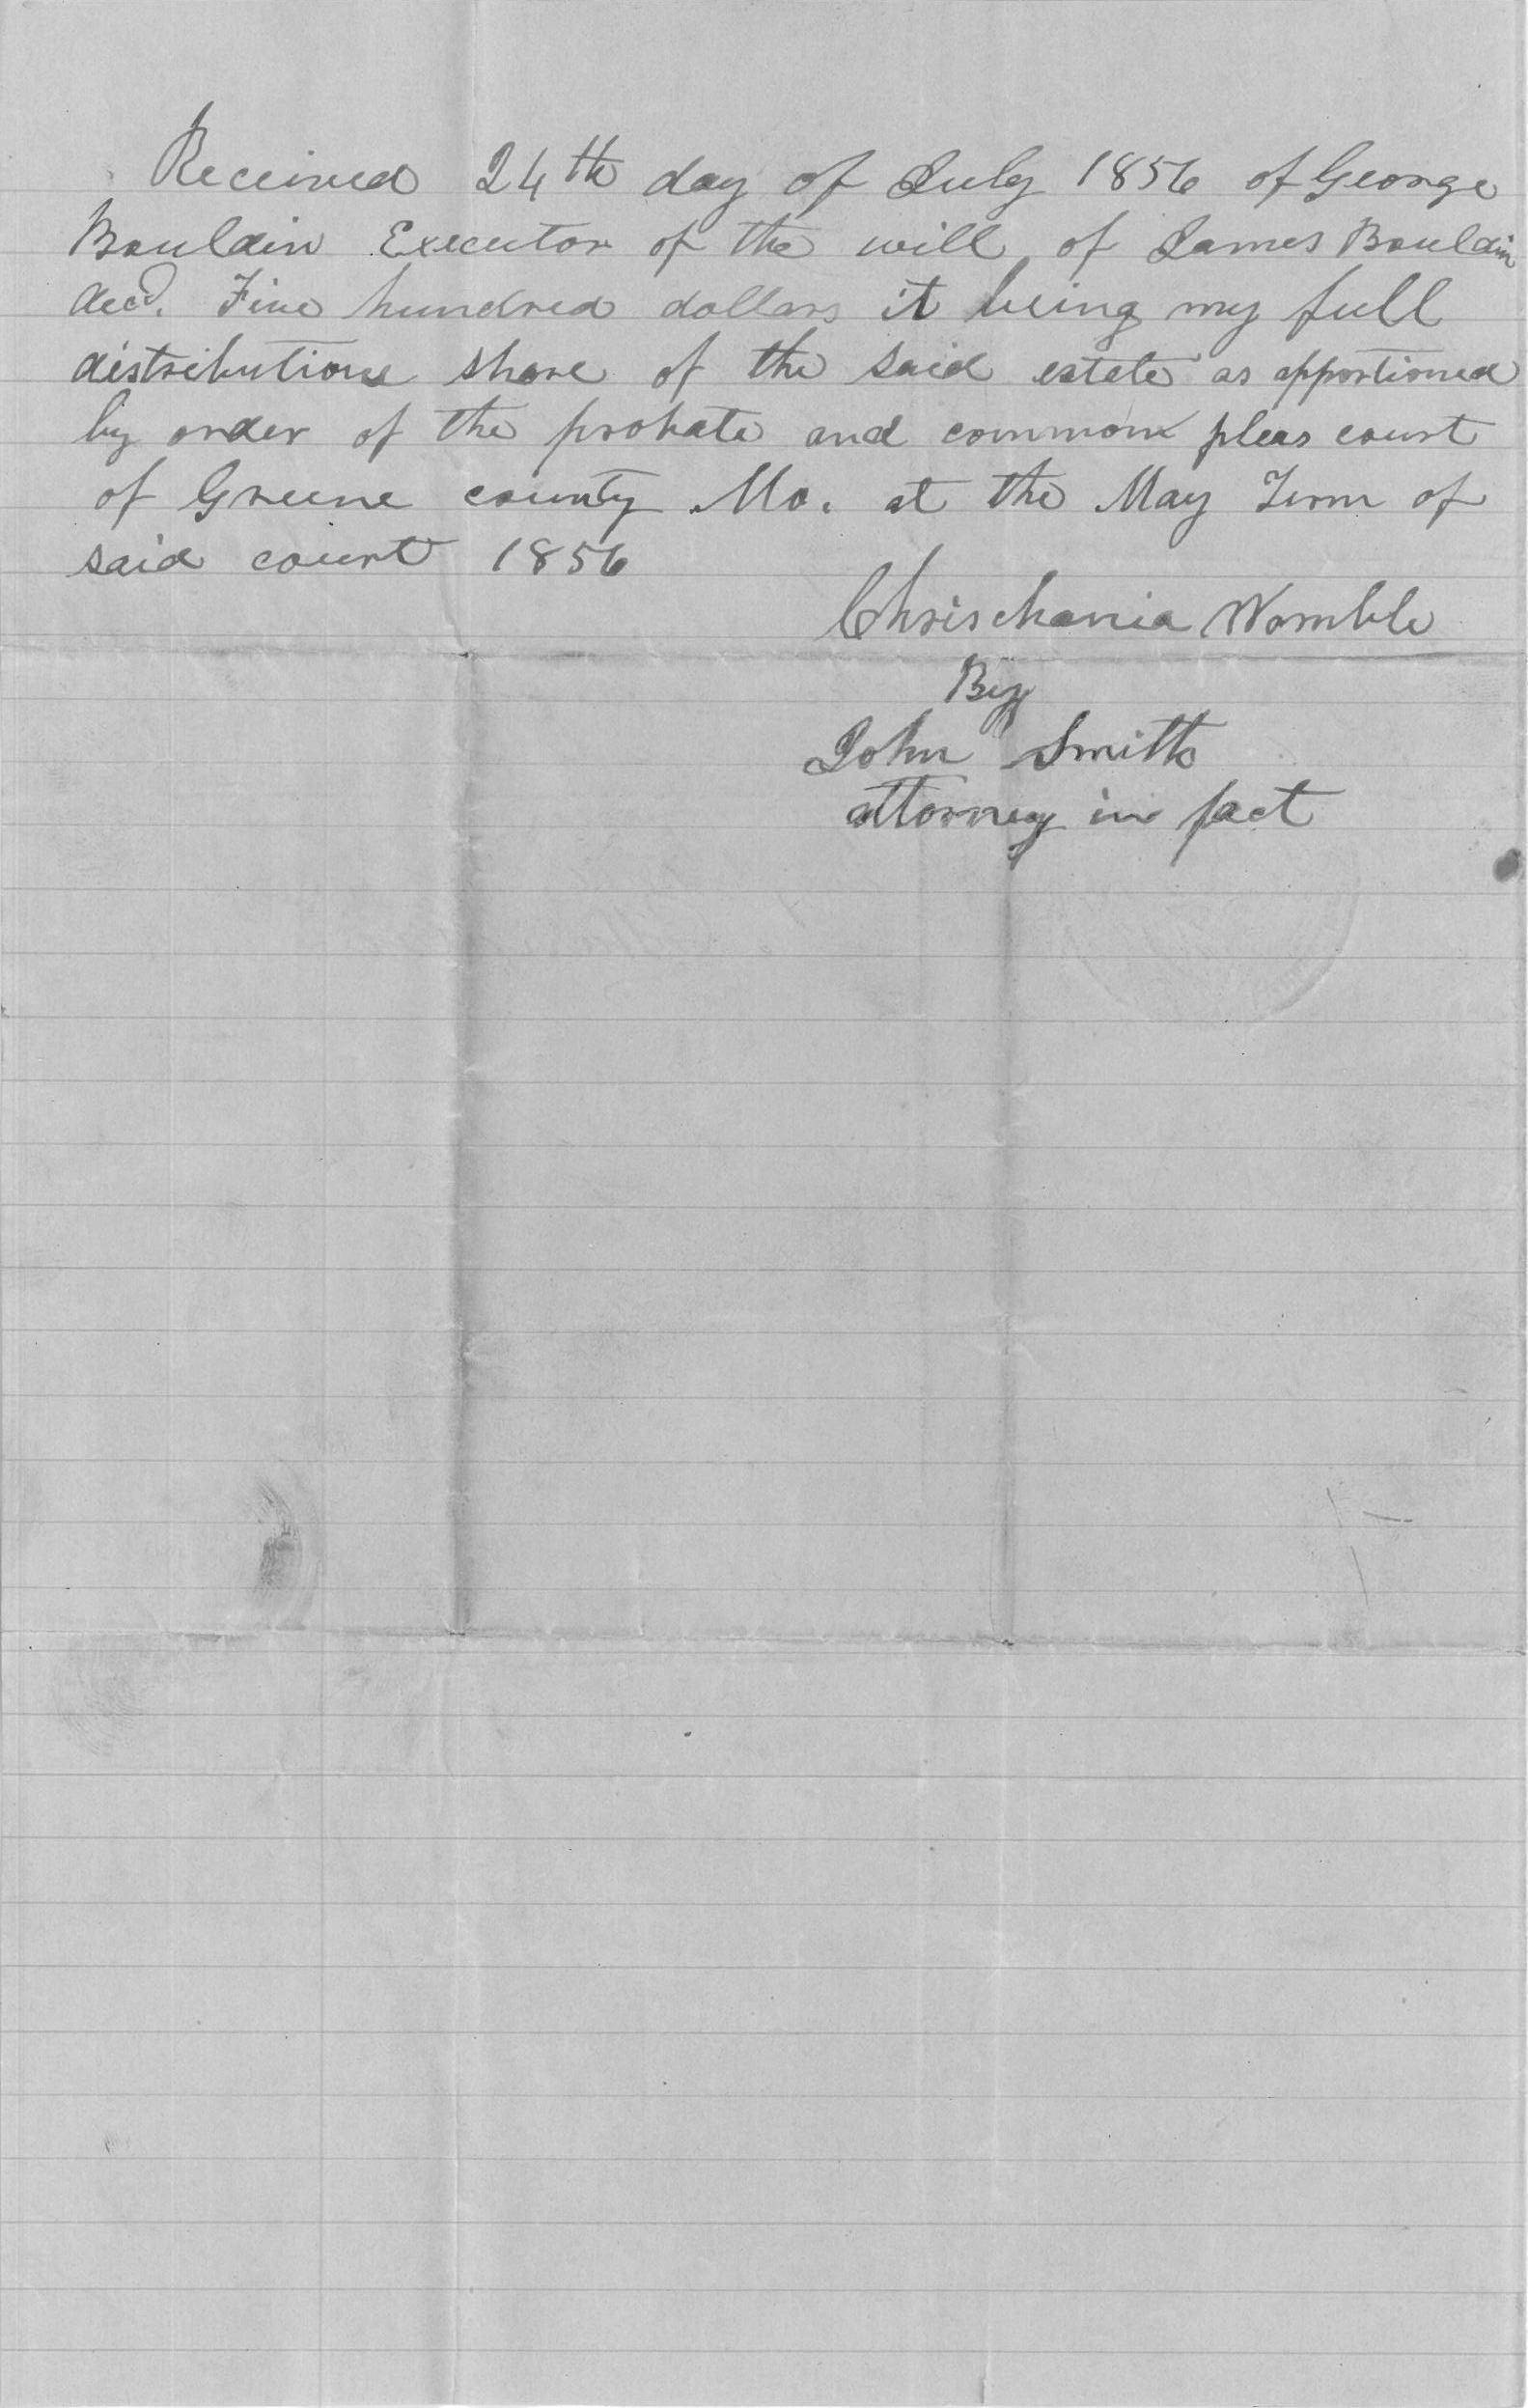 Received 24th day of July 1856 of George
Bouldin Executor of the will of James Bouldin
decd. Five hundred dollars it being my full
distributione share of the said estate as apportioned
by order of the probate and common pleas court
of Greene county Mo. at the May Term of
said court 1856
Chrischania Womble
By
John Smith
attorney in fact